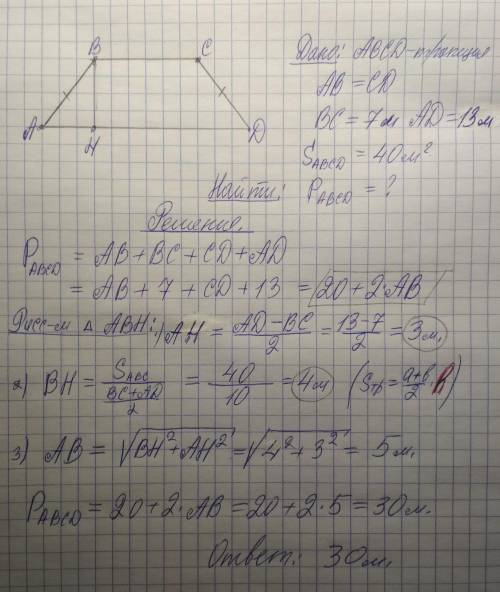 B C
A H D
Дано: ABCD-трапеция
AB = CD
BC = 7м AD = 13м
S_ABCD = 40м²
Найти: P_ABCD = ?
Решение.
P_ABCD = AB + BC + CD + AD
= AB + 7 + CD + 13 = 20 + 2·AB
Расс-м Δ ABH: 1) AH = (AD-BC)/2 = (13-7)/2 = 3м.
2) BH = S_ABC/((BC+AD)/2) = 40/10 = 4м (S_тр = (a+b)/2 · h)
3) AB = √(BH²+AH²) = √(4²+3²) = 5м.
P_ABCD = 20 + 2·AB = 20 + 2·5 = 30м.
Ответ: 30м.